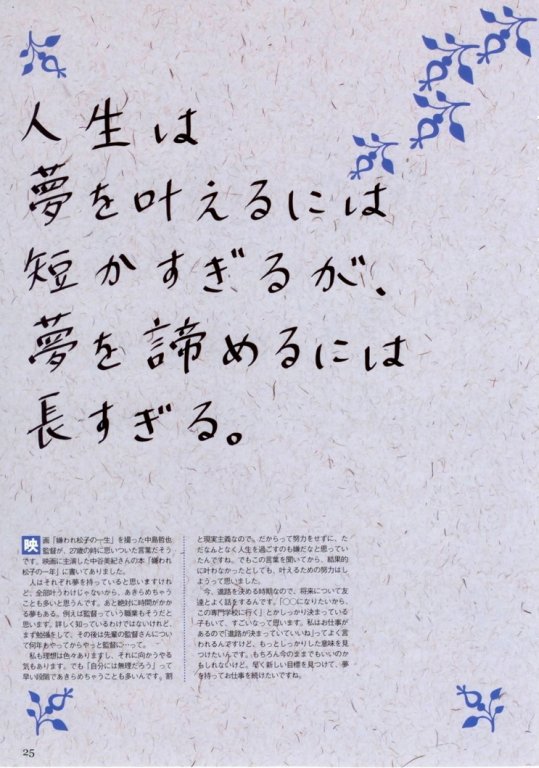 人生は
夢を叶えるには
短かすぎるが、
夢を諦めるには
長すぎる。
映画「嫌われ松子の一生」を撮った中島哲也
監督が、27歳の時に思いついた言葉だそう
です。映画に主演した中谷美紀さんの本「嫌われ
松子の一年」に書いてありました。
人はそれぞれ夢を持っていると思いますけれ
ど、全部叶うわけじゃないから、あきらめちゃう
ことも多いと思うんです。あと絶対に時間がかか
る夢もある。例えば監督っていう職業もそうだと
思います。詳しく知っているわけではないけれど、
まず勉強をして、その後は先輩の監督さんについ
て何年もやってからやっと監督に…って。
私も理想は色々ありますし、それに向かうやる
気もあります。でも「自分には無理だろう」って
早い段階であきらめちゃうことも多いんです。割
と現実主義なので。だからって努力をせずに、た
だなんとなく人生を過ごすのも嫌だなと思ってい
たんですね。でもこの言葉を聞いてから、結果的
に叶わなかったとしても、叶えるための努力はし
ようって思いました。
今、進路を決める時期なので、将来について友
達とよく話をするんです。「○○になりたいから、
この専門学校に行く」とかしっかり決まっている子
もいて、すごいなって思います。私はお仕事が
あるので「進路が決まっていていいね」ってよく言
われるんですけど、もっとしっかりした意味を見
つけたいんです。もちろん今のままでもいいのか
もしれないけど。早く新しい目標を見つけて、夢
を持ってお仕事を続けたいですね。
25